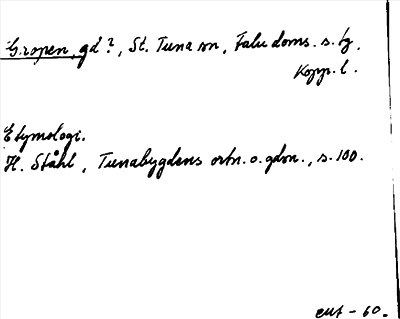 Gropen, gd?, St. Tuna sn, Falu doms. s. tg,
Kopp. l.
Etymologi.
H. Ståhl, Tunabygdens ortn. o. gdsn., s. 100.
- 60.